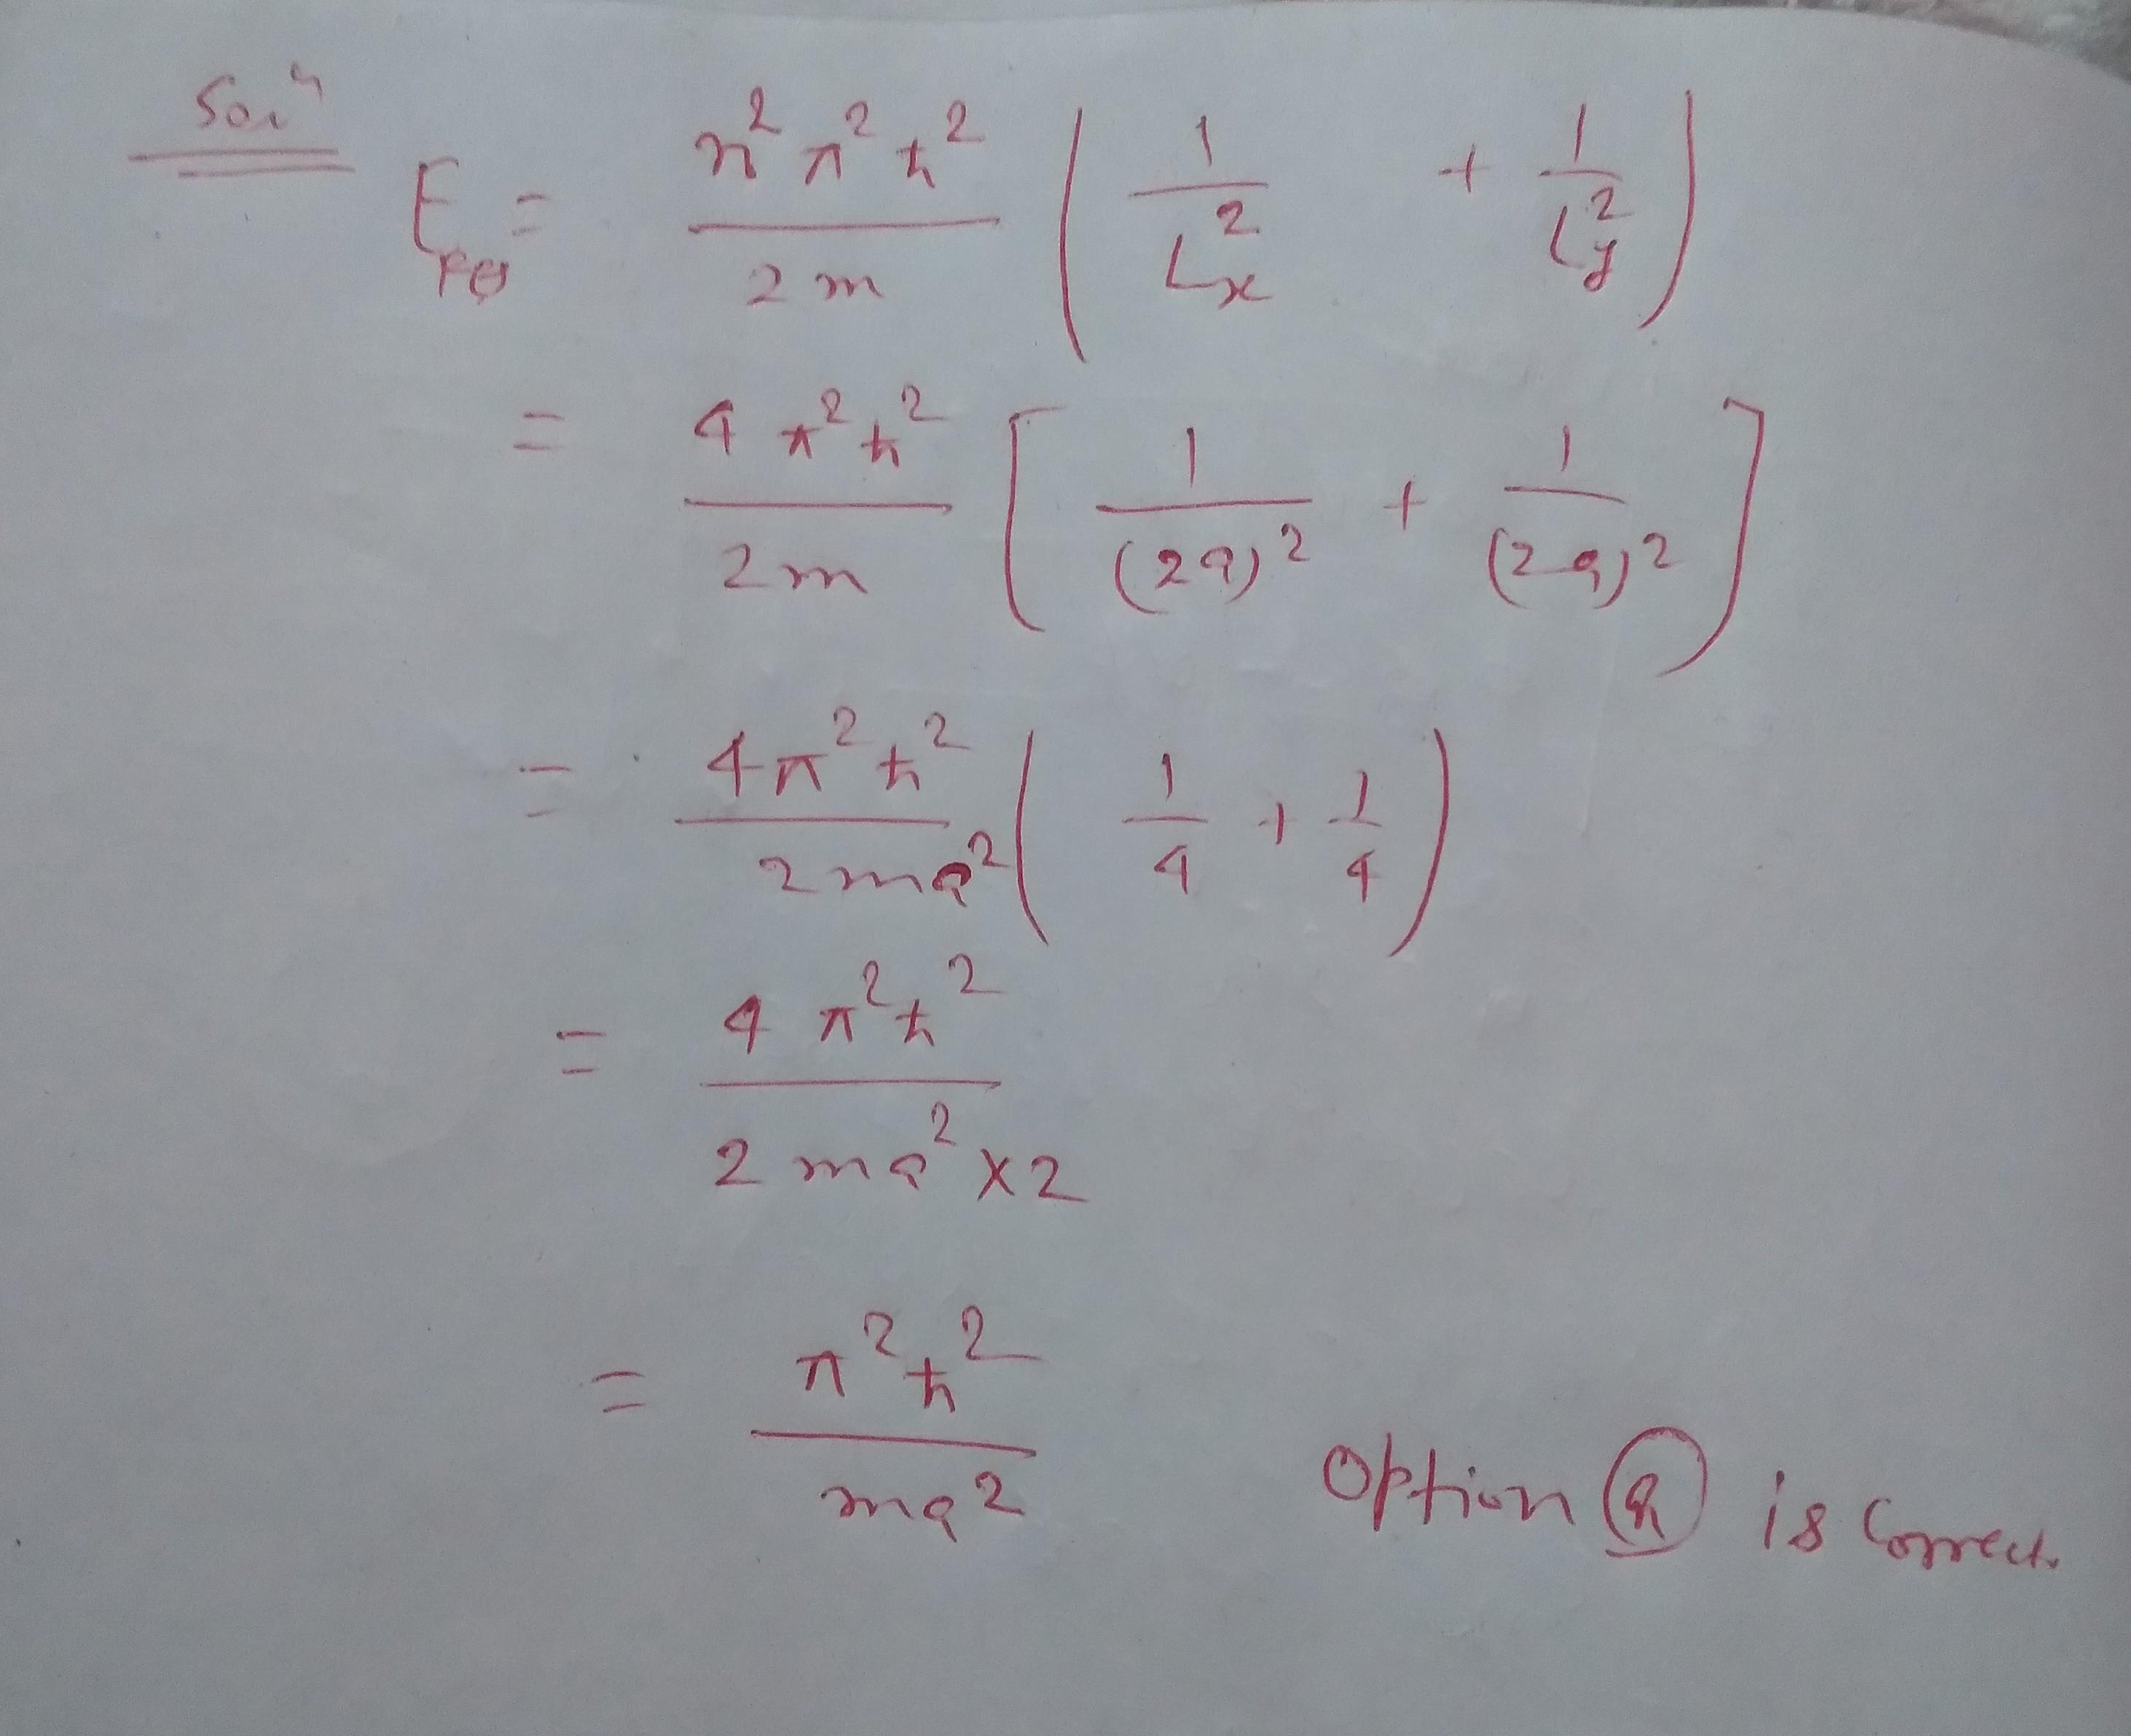 Soln
E = n² π² ħ² / 2m ( 1 / Lx² + 1 / Ly² )
= 4 π² ħ² / 2m [ 1 / (2a)² + 1 / (2a)² ]
= 4π² ħ² / 2ma² ( 1/4 + 1/4 )
= 4 π² ħ² / 2 ma² × 2
= π² ħ² / ma²
Option (a) is Correct.